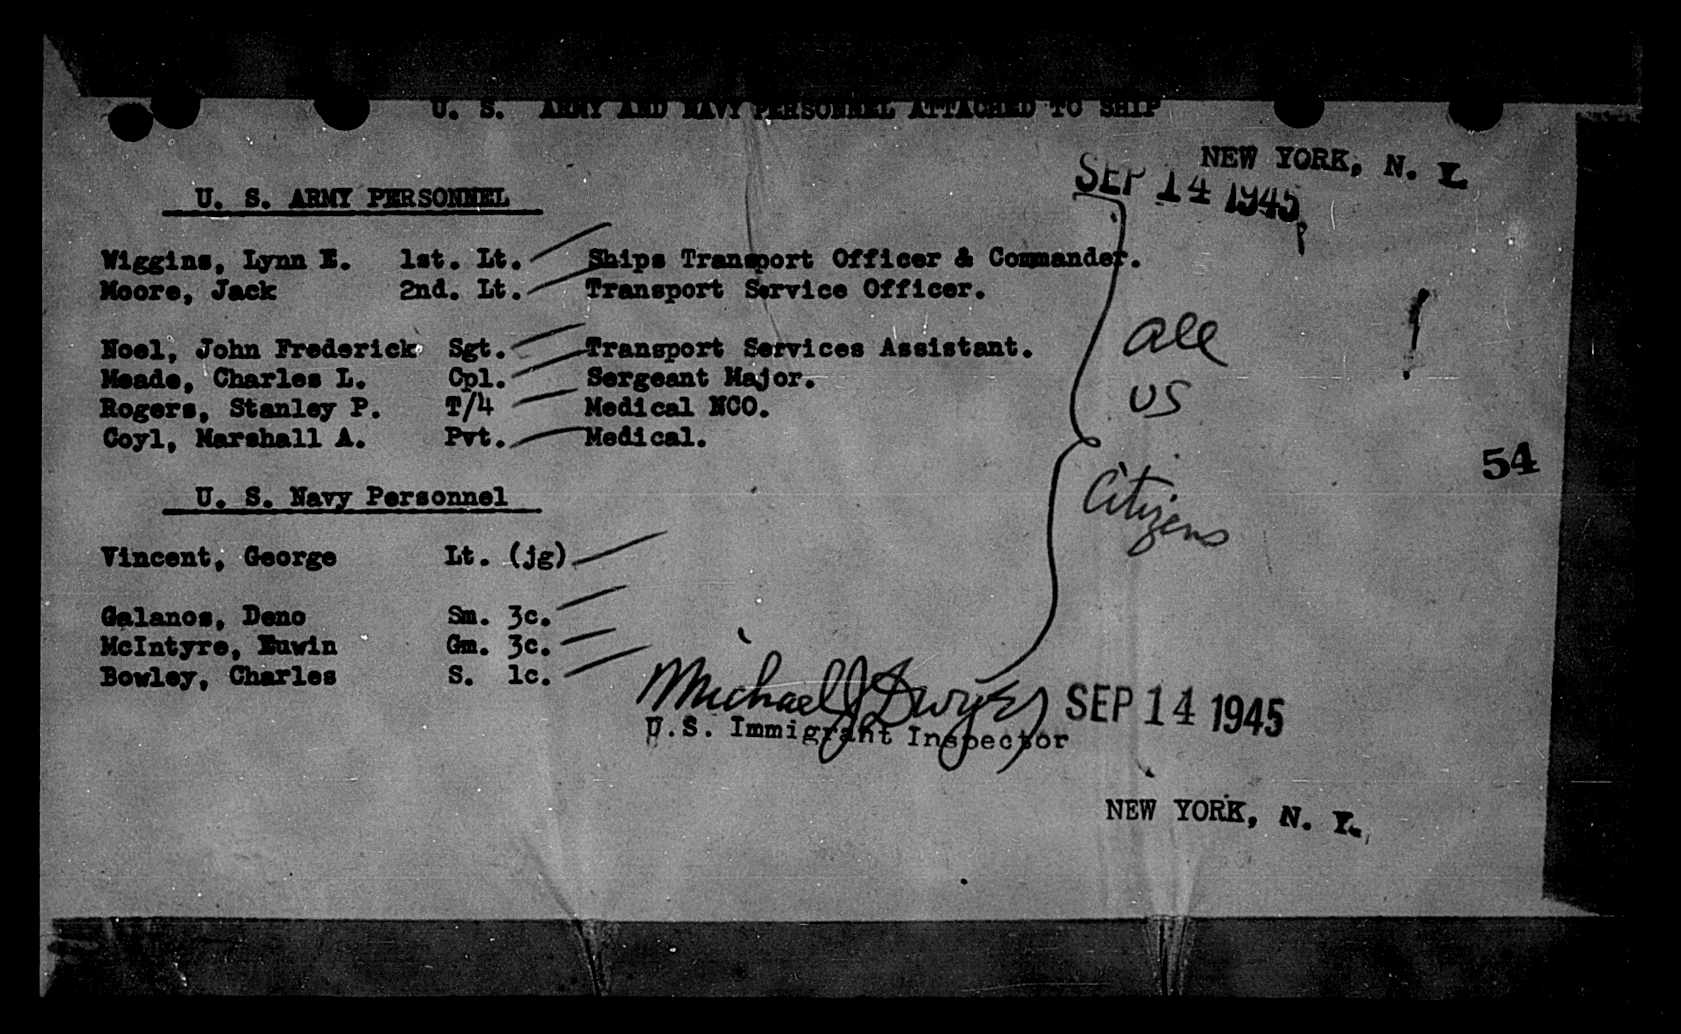 U. S. ARMY AND NAVY PERSONNEL ATTACHED TO SHIP
NEW YORK, N. Y.
SEP 14 1945
U. S. ARMY PERSONNEL
Wiggins, Lynn E. 1st. Lt. Ships Transport Officer & Commander.
Moore, Jack 2nd. Lt. Transport Service Officer.
Noel, John Frederick Sgt. Transport Services Assistant.
Meade, Charles L. Cpl. Sergeant Major.
Rogers, Stanley P. T/4 Medical NCO.
Coyl, Marshall A. Pvt. Medical.
all
US
Citizens
54
U. S. Navy Personnel
Vincent, George Lt. (jg)
Galanos, Deno Sm. 3c.
McIntyre, Euwin Gm. 3c.
Bowley, Charles S. 1c.
Michael J Dwyer SEP 14 1945
U.S. Immigrant Inspector
NEW YORK, N. Y.